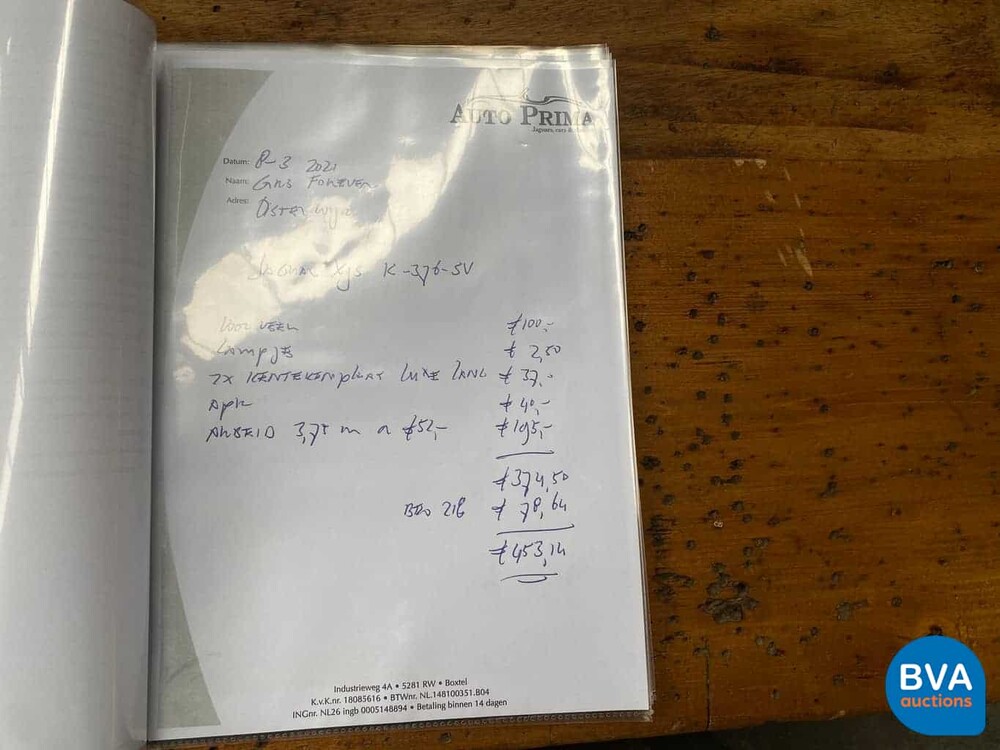 AUTO PRIMA
Jaguars, easy
Datum: 8-3 2021
Naam: GAS FOREVER
Adres: OISTERWIJK
JAGUAR XJS K-376-SV
VOOR VEER €100,-
LAMPJES € 2,50
2X KENTEKENPLAAT LUXE LANG € 37,-
APK € 40,-
ARBEID 3,75 m a €52,- €195,-
€374,50
BTW 21% € 78,64
€453,14
Industrieweg 4A • 5281 RW • Boxtel
K.v.K.nr. 18085616 • BTWnr. NL.148100351.B04
INGnr. NL26 ingb 0005148894 • Betaling binnen 14 dagen
BVA
auctions